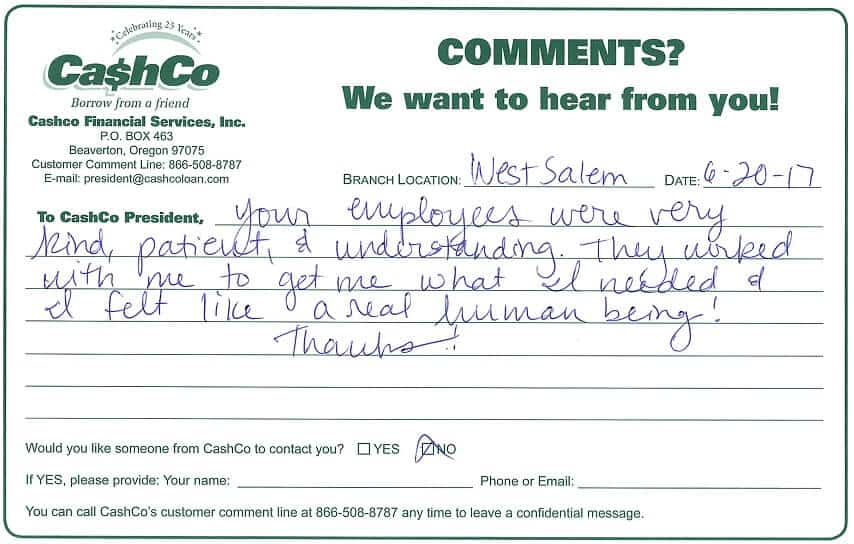 Celebrating 25 Years
Ca$hCo
Borrow from a friend
Cashco Financial Services, Inc.
P.O. BOX 463
Beaverton, Oregon 97075
Customer Comment Line: 866-508-8787
E-mail: president@cashcoloan.com
COMMENTS?
We want to hear from you!
BRANCH LOCATION: West Salem DATE: 6-20-17
To CashCo President, Your employees were very
kind, patient, & understanding. They worked
with me to get me what I needed &
I felt like a real human being!
Thanks!
Would you like someone from CashCo to contact you? YES NO
If YES, please provide: Your name: Phone or Email:
You can call CashCo's customer comment line at 866-508-8787 any time to leave a confidential message.